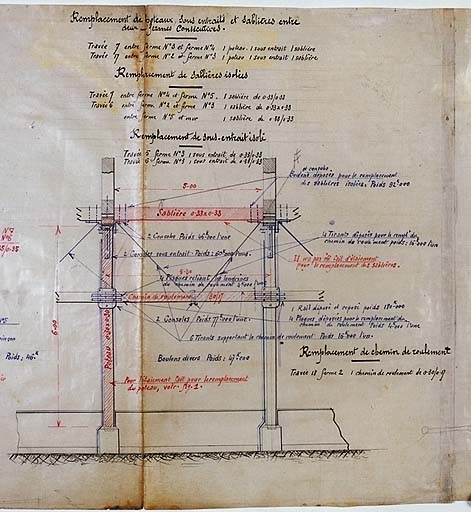 Remplacement de poteaux, sous entraits et sablières entre
deux fermes Consécutives.
Travée 7 entre ferme N°3 et ferme N°4 1 poteau 1 sous entrait 1 sablière
Travée 17 entre ferme N°2 et ferme N°3 1 poteau 1 sous entrait 1 sablière
Remplacement de sablières isolées
Travée 7 entre ferme N°4 et ferme N°5. 1 sablière de 0.33/0.33
Travée 6 entre ferme N°2 et ferme N°3 1 sablière de 0.33x0.33
entre ferme N°5 et mur 1 sablière de 0.33/0.33
Remplacement de sous-entrait isolé
Travée 5 ferme N°3 1 sous entrait de 0.33/0.33
ferme N°3 1 sous entrait de
5.00
déposés pour le remplacement
des sablières isolées. Poids 92k000
Sablière 0.33x0.33
N°7
N°6
2 Consoles Poids l'une
4 Consoles sous entrait. Poids: l'une
4 Tirants déposés pour le rempl.t du
chemin de roulement poids: 16k000 l'un
Il n'a pas été fait d'étaiement
pour le remplacement des sablières.
4 Plaques reliant les longrines
du chemin de roulement l'une
Chemin de roulement
6.00
Poteau
2 Consoles Poids 77k000 l'une
1 Rail déposé et reposé poids
4 Plaques déposées pour le remplacement du
chemin de roulement Poids l'une
6 Tirants supportant le chemin de roulement Poids 16k000 l'un.
N°5
Poids, 46k
Boulons divers Poids:
Remplacement de chemin de roulement
Travée 18 ferme 2 1 chemin de roulement de
Pour l'étaiement fait pour le remplacement
du poteau, voir. Fig. 1.